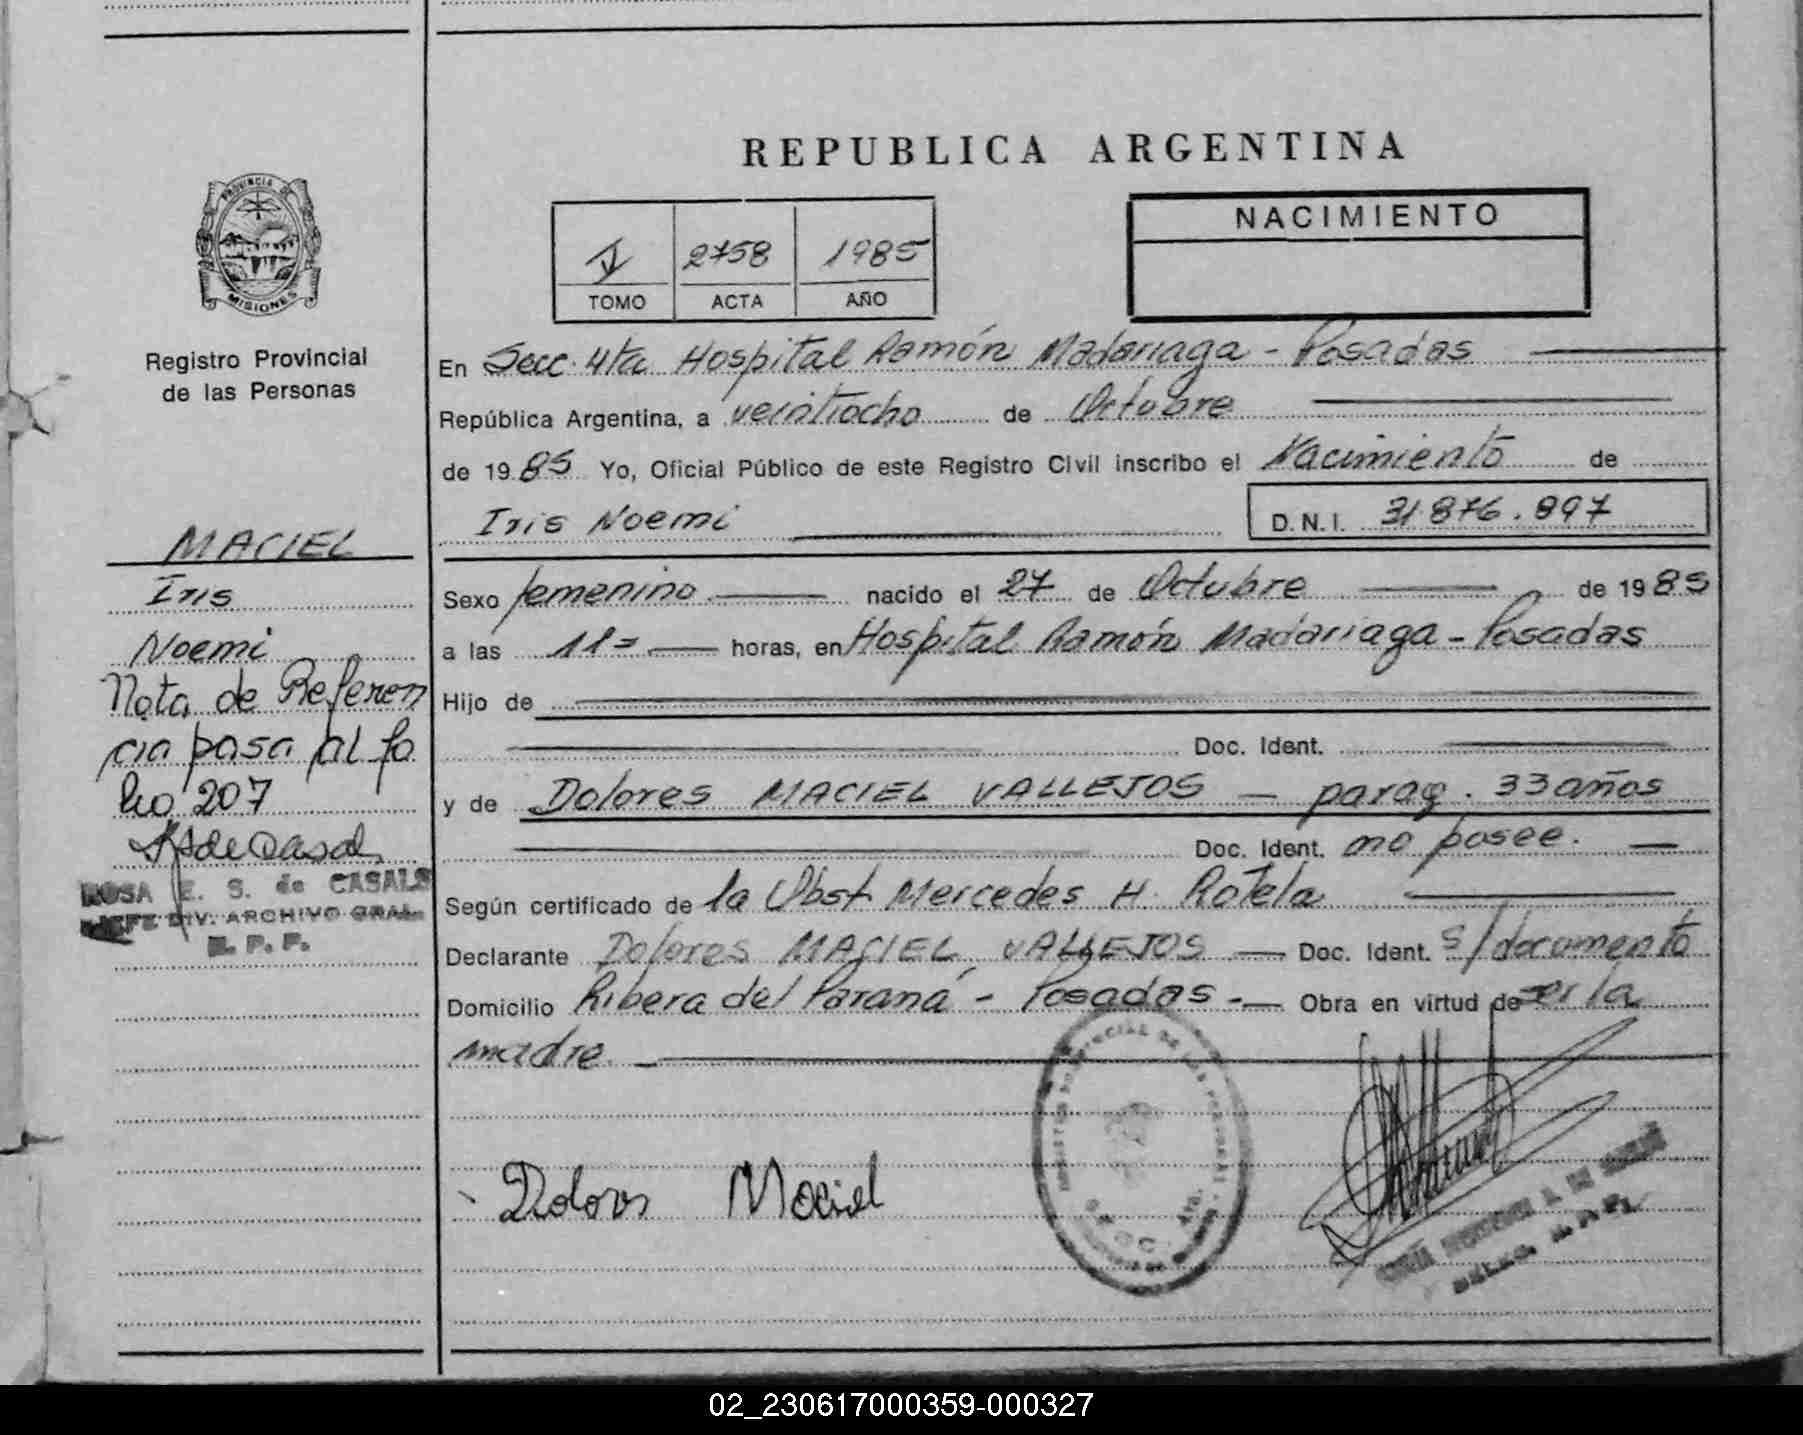 REPUBLICA ARGENTINA
PROVINCIA DE
MISIONES
Registro Provincial
de las Personas
2758 1985
TOMO ACTA AÑO
NACIMIENTO
En Secc. 4ta Hospital Ramón Madariaga - Posadas
República Argentina, a veintiocho de Octubre
de 1985 Yo, Oficial Público de este Registro Civil inscribo el Nacimiento de
Iris Noemi D.N.I. 31876.897
MACIEL
Iris
Noemi
Nota de Referen
cia pasa al fo
lio 207
ROSA E. S. de CASALS
JEFE DIV. ARCHIVO GRAL.
R. P. P.
Sexo femenino nacido el 27 de Octubre de 1985
a las 11= horas, en Hospital Ramón Madariaga - Posadas
Hijo de
Doc. Ident.
y de Dolores MACIEL VALLEJOS - parag. 33 años
Doc. Ident. no posee.
Según certificado de la Obst Mercedes H. Rotela
Declarante Dolores MACIEL VALLEJOS - Doc. Ident. s/documento
Domicilio Ribera del Paraná - Posadas - Obra en virtud de ser la
madre.
Dolores Maciel
02_230617000359-000327